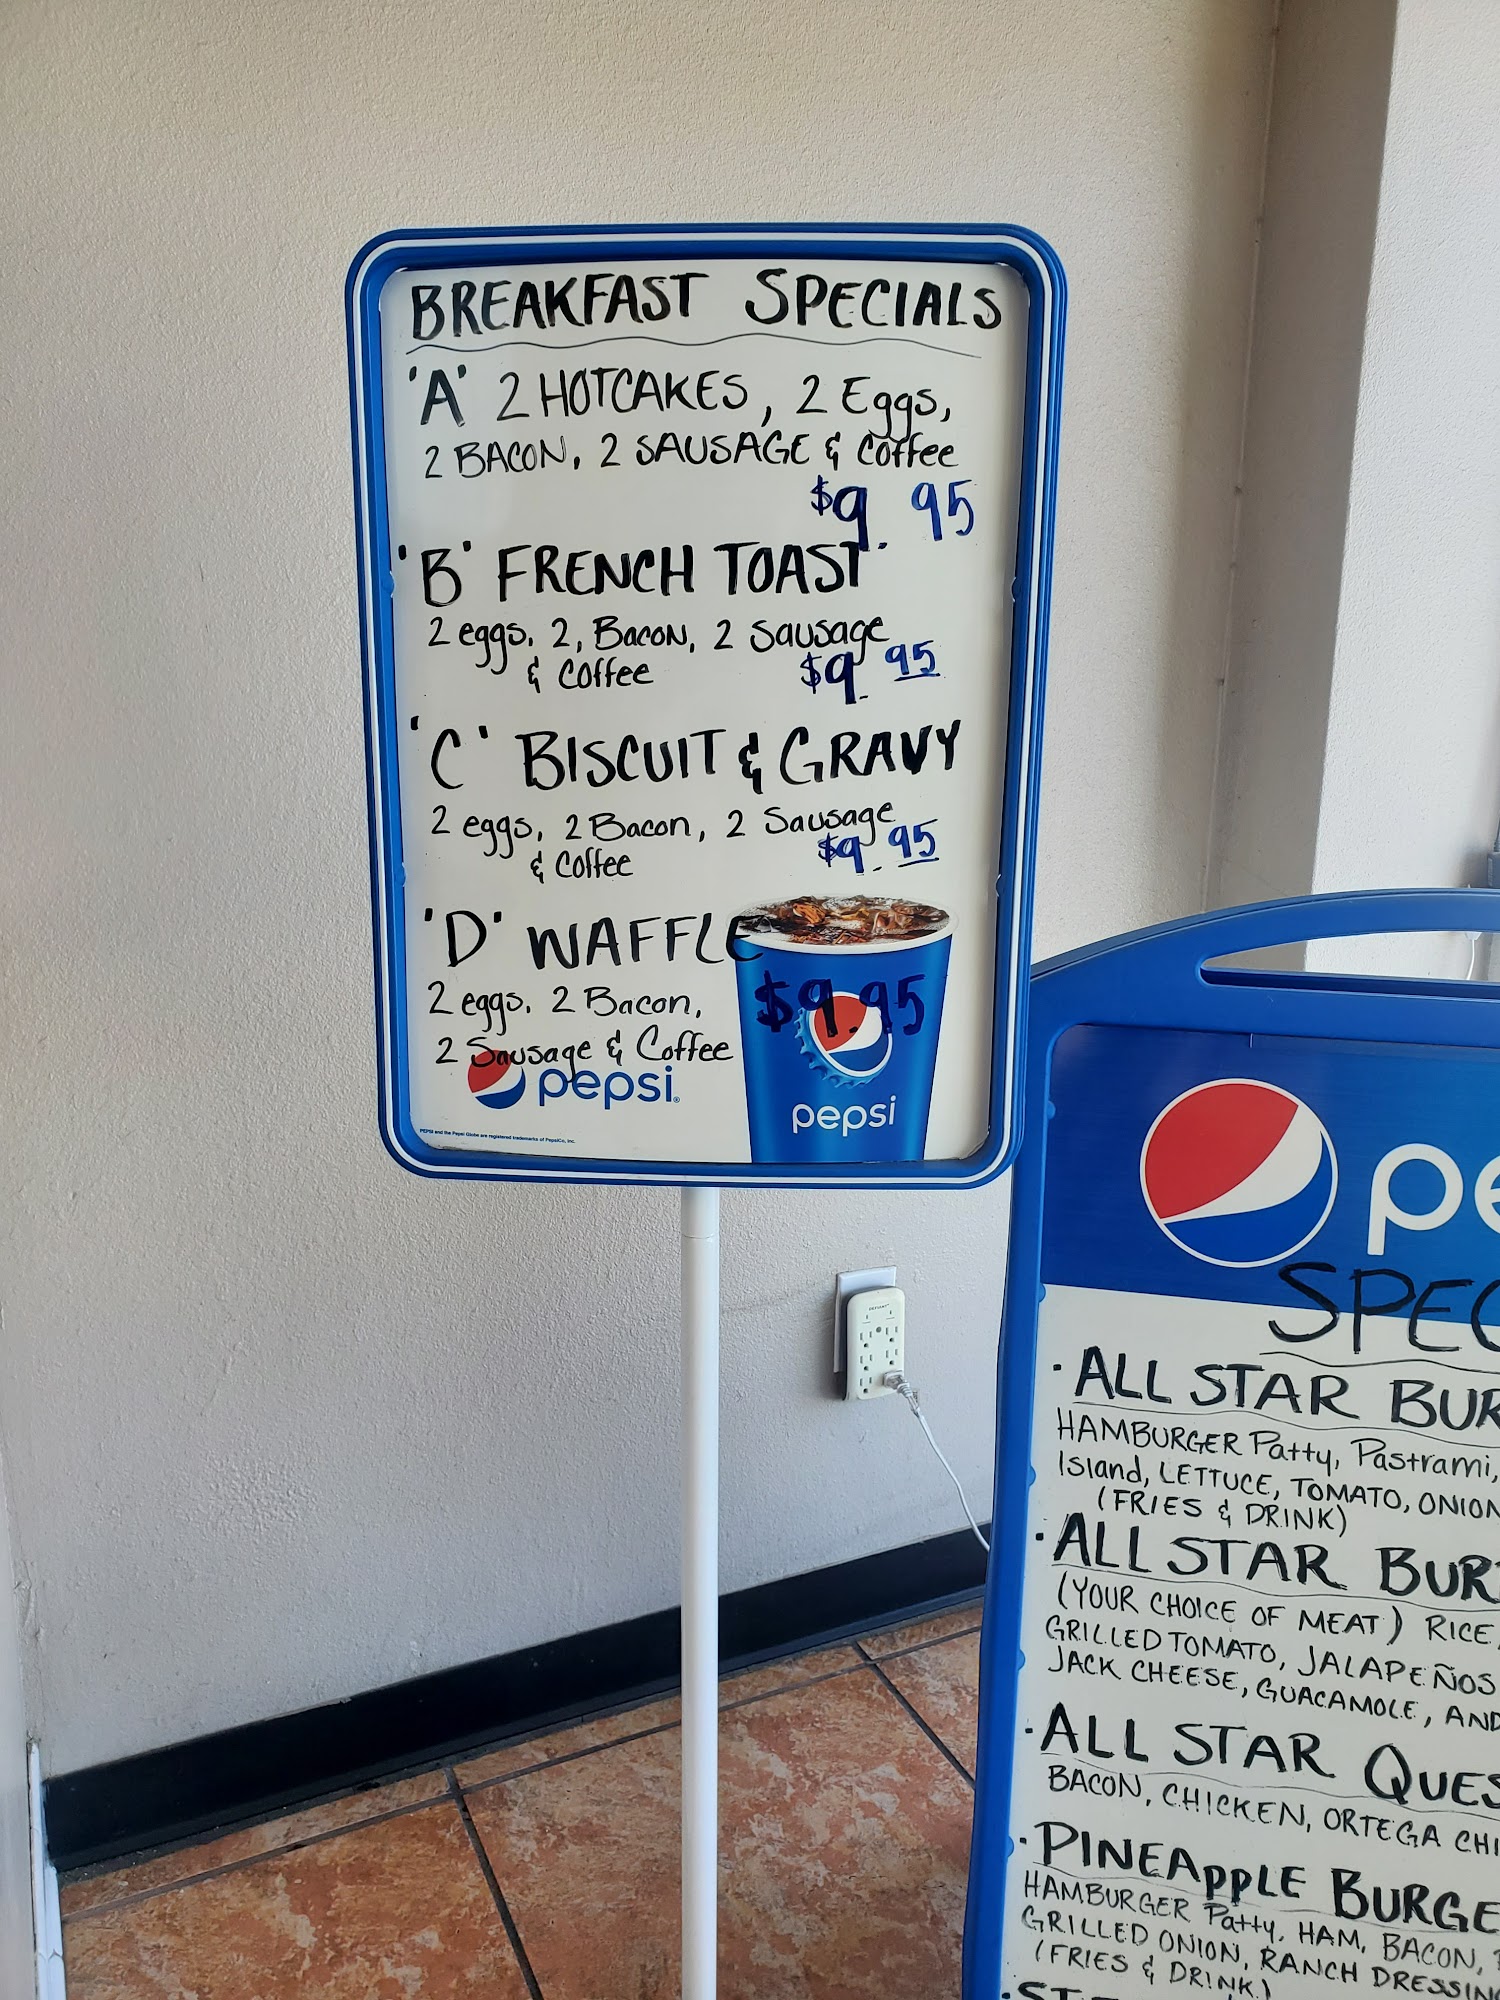 BREAKFAST SPECIALS
'A' 2 HOTCAKES, 2 Eggs,
2 BACON, 2 SAUSAGE & Coffee
$9.95
'B' FRENCH TOAST
2 eggs, 2, Bacon, 2 Sausage
& Coffee $9.95
'C' BISCUIT & GRAVY
2 eggs, 2 Bacon, 2 Sausage
& Coffee $9.95
'D' WAFFLE
2 eggs. 2 Bacon, $9.95
2 Sausage & Coffee
pepsi
pepsi
PEPSI and the Pepsi Globe are registered trademarks of PepsiCo, Inc.
pe
SPEC
· ALL STAR BUR
HAMBURGER Patty, Pastrami,
Island, LETTUCE, TOMATO, ONION
(FRIES & DRINK)
· ALL STAR BUR
(YOUR CHOICE OF MEAT) RICE,
GRILLED TOMATO, JALAPEÑOS
JACK CHEESE, GUACAMOLE, AND
· ALL STAR QUES
BACON, CHICKEN, ORTEGA CHI
· PINEAPPLE BURGE
HAMBURGER Patty, HAM, BACON,
GRILLED ONION, RANCH DRESSING
(FRIES & DRINK)